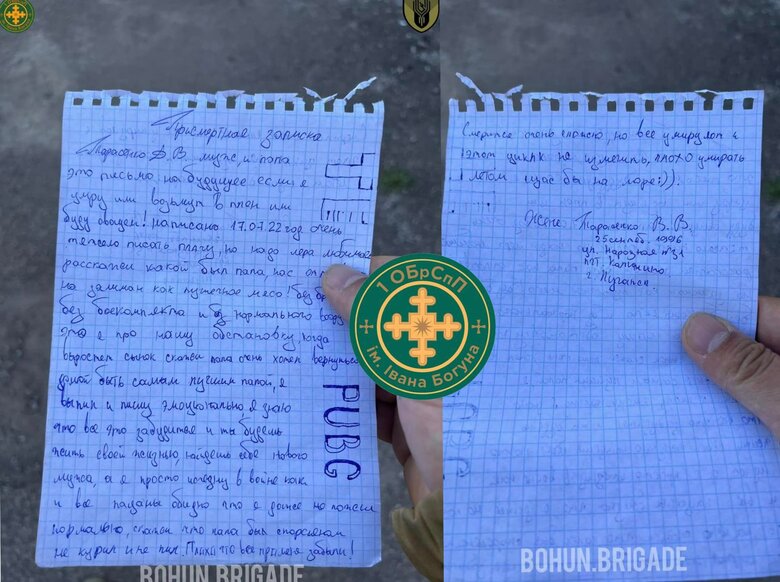 Посмертная записка
Тарасенко Д.В. муж, и папа
это письмо на будущее если я
умру или возьмут в плен или
буду овощем! написано 17.07.22 год очень
тяжело писать плачу, но надо лера любимая
расскажи какой был папа нас
на заклман как пушечное мясо! без
без боекомплекта и без нормального воды
это я про нашу обстановку, когда
выростет сынок скажи папа очень хотел вернуться
домой быть самым лучшим папой, я
выпил и пишу эмоционально я знаю
что все это забудиться и ты будешь
жить своей жизнью, найдешь себе нового
мужа, а я просто исчезну в войне как
и все пацаны обидно что я даже не пожил
нормально, скажи что папа был спорсменом
не курил и не пил. Плохо что все про меня забыли!
PUBG
BOHUN.BRIGADE
1 ОБрСпП
ім. Івана Богуна
очень но все умирают и
этот цикл не изменить, плохо умирать
летом щас бы на море:)).
Жене Тарасенко В.В.
25 сентяб. 1996
ул. Народная
пгт. Калинино
г. Луганск
BOHUN.BRIGADE